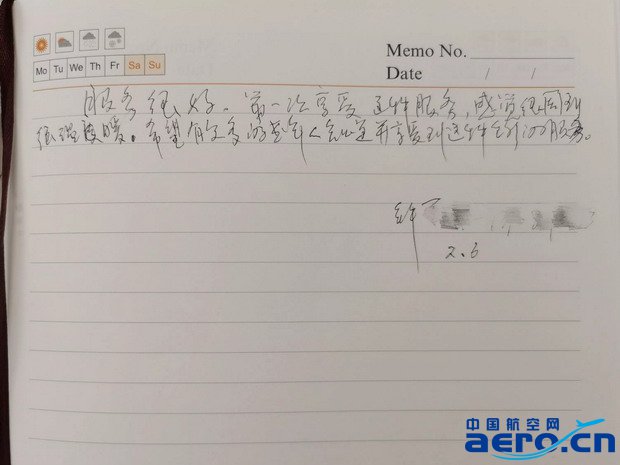 Memo No.
Mo Tu We Th Fr Sa Su
Date / /
服务很好。第一次享受这种服务,感觉很周到
很温暖。希望有更多的老年人知道并享受到这种的服务。
许
2.6
中国航空网
aero.cn